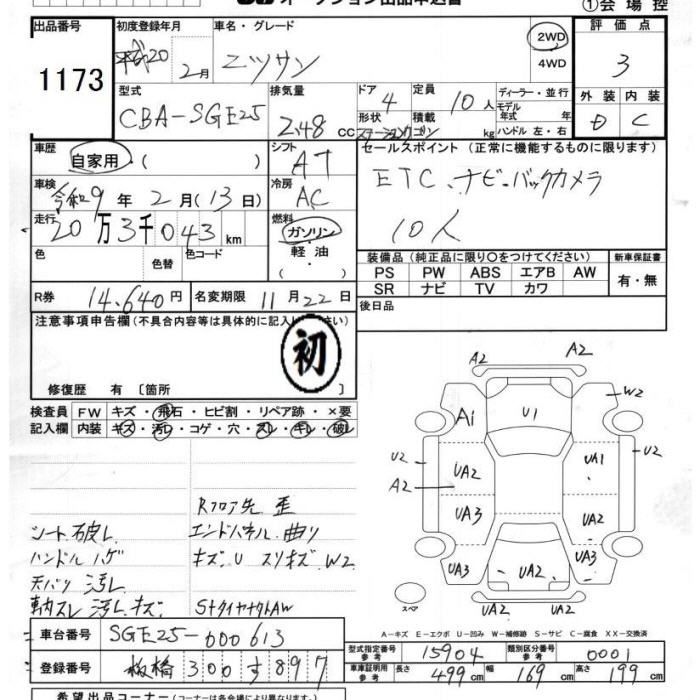 オークション出品申込書 ①会場控
出品番号 初度登録年月 車名・グレード 2WD 4WD 評価点
1173 平成20 2月 ニッサン 3
型式 CBA-SGE25 排気量 2.48 cc
ドア 4 定員 10人 ディーラー・並行
形状 ステーションワゴン 積載 kg モデル年式 年式 ハンドル 左・右
外装 内装
D C
車歴 自家用・( ) シフト AT
セールスポイント(正常に機能するものに限ります)
車検 令和9年2月(13日) 冷房 AC
ETC、ナビ・バックカメラ
走行 20万3千043km 燃料 ガソリン・軽油・( )
10人
色 色替 色コード
装備品(純正品に限り〇をつけてください) 新車保証書
PS PW ABS エアB AW 有・無
SR ナビ TV カワ
R券 14.640円 名変期限 11月22日
後日品
注意事項申告欄(不具合内容等は具体的に記入ください)
初
修復歴 有〔箇所
検査員 FW キズ・飛石・ヒビ割・リペア跡・×要
記入欄 内装 キズ・汚レ・コゲ・穴・スレ・キレ・破レ
Rフロア先 歪
シート破レ エンドパネル 曲り
ハンドルハゲ キズ、U スリキズ W2
天バリ 汚レ
車内スレ 汚レ キズ
A2 A2
W2
Ai U1
U2 UA2 UA1 U2
A2
UA3 UA2
UA3 UA2 UA3
スペア
UA2 UA2
A-キズ E-エクボ U-凹み W-補修跡 S-サビ C-腐食 XX-交換済
車台番号 SGE25-000613
型式指定番号 参考 15904 類別区分番号 参考 0001
登録番号 板橋 300 す 897
車庫証明用 参考 長さ 499cm 幅 169cm 高さ 199cm
希望出品コーナー(コーナーは各会場により異なります)